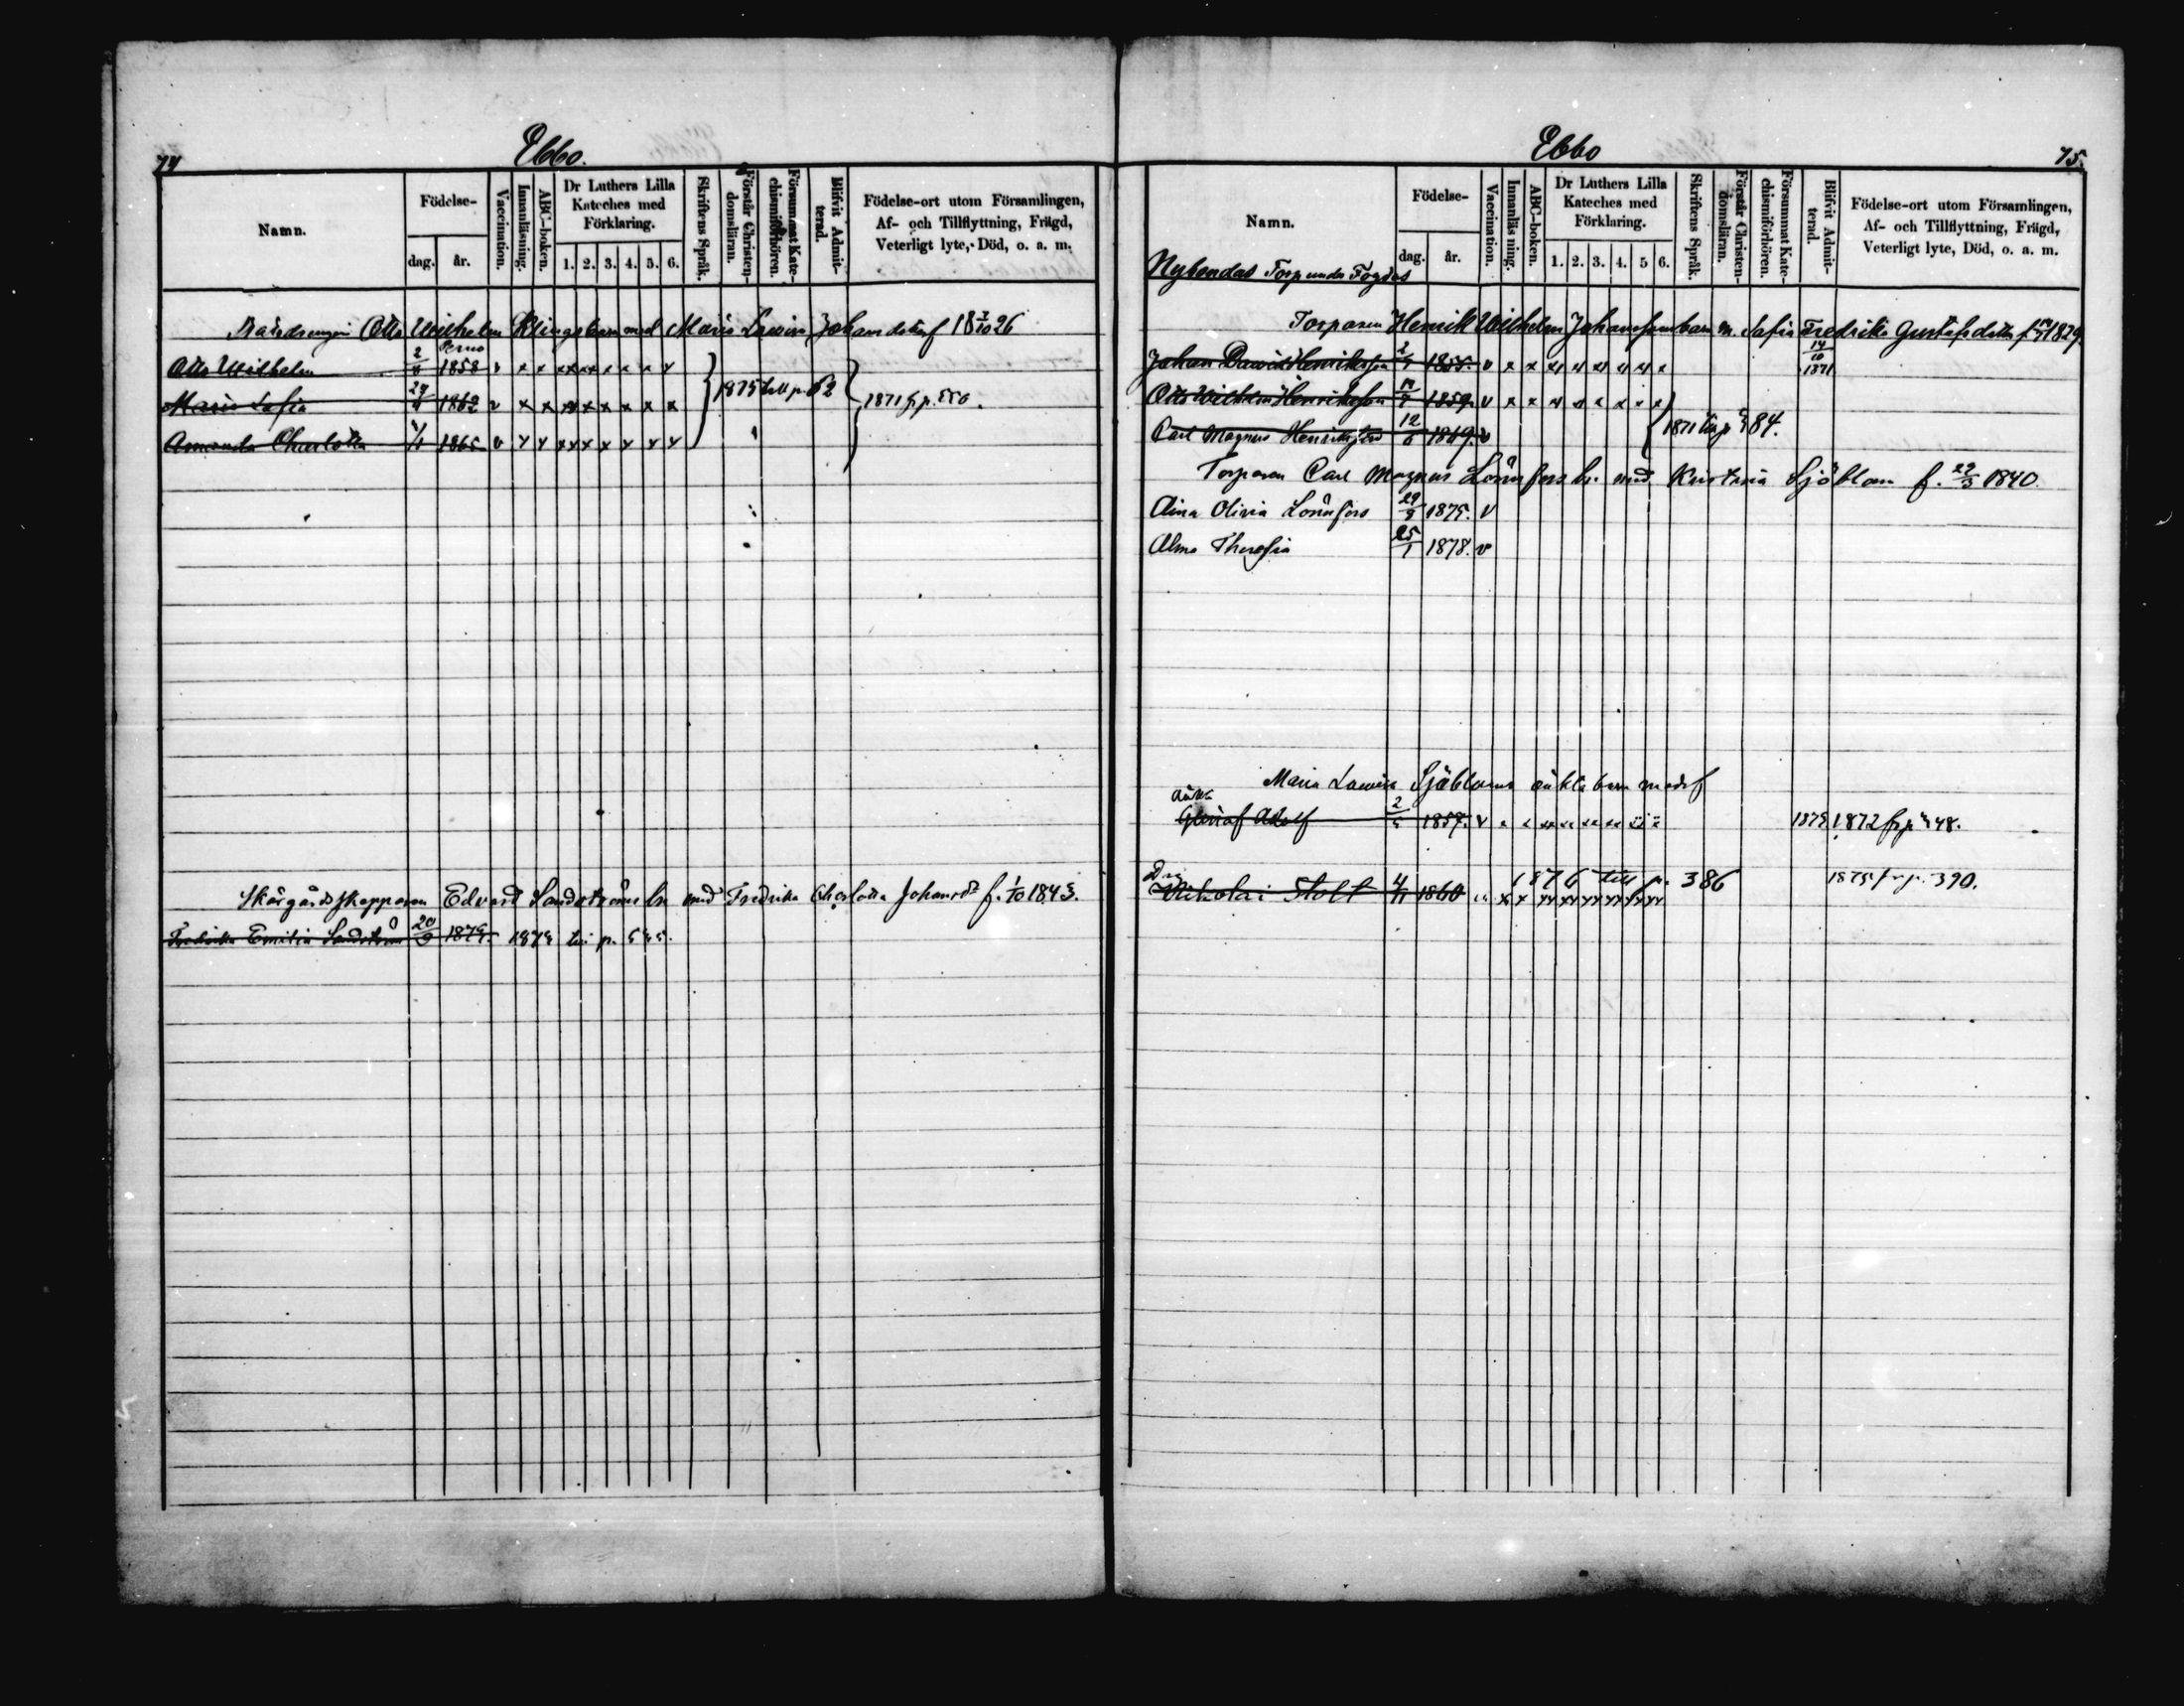 74
Ebbo.
Namn.
Födelse-
dag.
år.
Vaccination.
Innanläsning.
ABC-boken.
Dr Luthers Lilla
Kateches med
Förklaring.
1. 2. 3. 4. 5. 6.
Skriftens Språk.
Förstår Christen-
domsläran.
Försummat Kate-
chismiförhören.
Blifvit Admit-
terad.
Födelse-ort utom Församlingen,
Af- och Tillflyttning, Frägd,
Veterligt lyte, Död, o. a. m.
Otto Wilhelm Klings barn med Maria Lovisa Johansdoter f 18 26
Perno
Otto Wilhelm 1858 v x x xx xx x x x x
Maria Sofia 1862 v x x x x x x x x
Amanda Charlotta 1865 v
1875 till p. 62
1871 fr p. 550.
Skärgårdsskepparen Edvard Sandströms bn med Fredrika Charlotta Johansdr f. 1/10 1843.
Fredrika Emilia Sandström 1879. 1879 till p. 545.
Ebbo
75.
Namn.
Födelse-
dag.
år.
Vaccination.
Innanläsning.
ABC-boken.
Dr Luthers Lilla
Kateches med
Förklaring.
1. 2. 3. 4. 5 6.
Skriftens Språk.
Förstår Christen-
domsläran.
Försummat Kate-
chismiförhören.
Blifvit Admit-
terad.
Födelse-ort utom Församlingen,
Af- och Tillflyttning, Frägd,
Veterligt lyte, Död, o. a. m.
Nybondas Torp under Fogdas
Torparen Henrik Wilhelm Johanssons barn m. Sofia Fredrika Gustafsdotter f 1829.
Johan David Henriksson 1855. v x x
14/10 1871
Otto Wilhelm Henriksson 1859. v x x
Carl Magnus Henriksson 12/6 1869. v
1871 till p 84.
Torparen Carl Magnus Lönnfors bn. med Kristina Sjöblom f. 1840
Aina Olivia Lönnfors 1875. v
Alma Theresia 25/1 1878. v
Maria Lovisa Sjöbloms oäkta barn med
oäkta
Gustaf Adolf 1857. v x x 1872 fr p 48.
Drg
Nikolai Stolt 4/11 1860 1876 till p. 386 1875 fr p. 390.